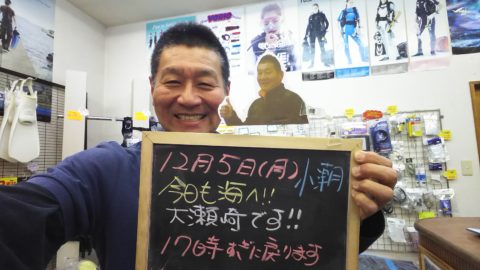 12月5日(月) 小潮
今日も海へ!!
大瀬崎です!!
17時すぎに戻ります